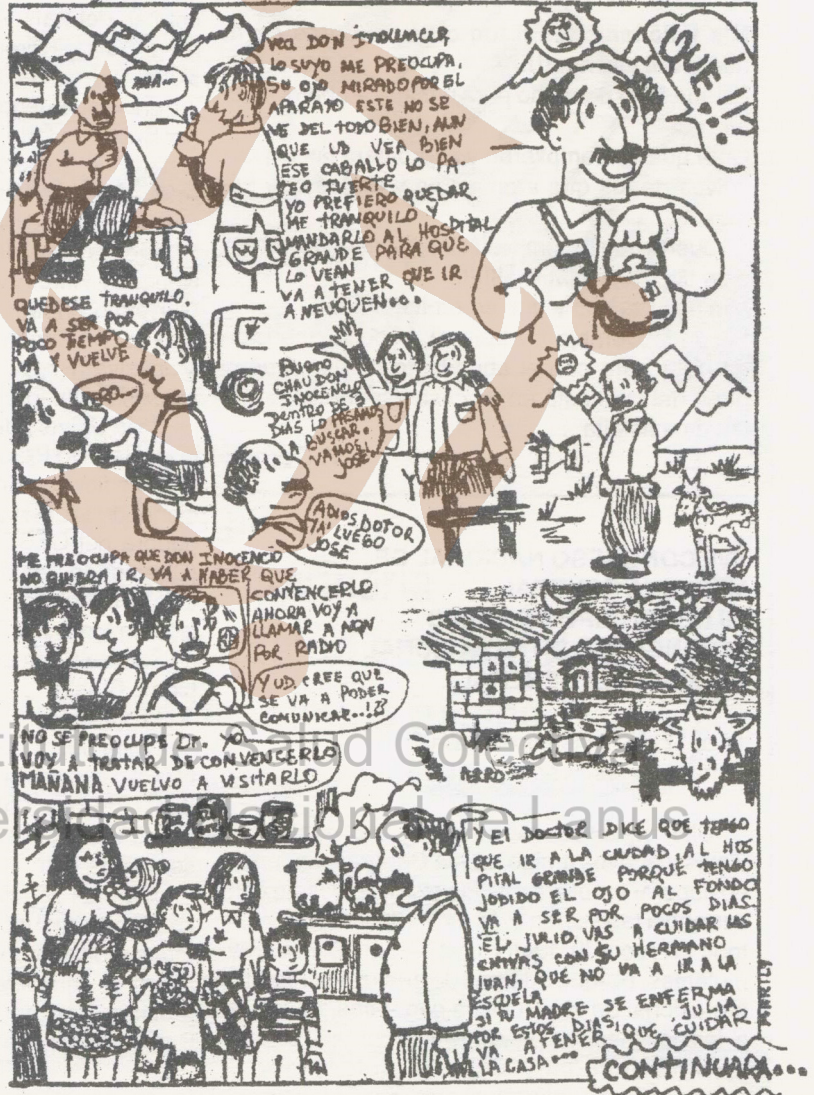 VEA DON INOCENCIO,
LO SUYO ME PREOCUPA,
SU OJO MIRADO POR EL
APARATO ESTE NO SE
VE DEL TODO BIEN, AUN
QUE UD VEA BIEN
ESE CABALLO LO PA-
TEO FUERTE
YO PREFIERO QUEDAR
ME TRANQUILO Y
MANDARLO AL HOSPITAL
GRANDE PARA QUE
LO VEAN
VA A TENER QUE IR
A NEUQUEN...
QUE!!!...
QUEDESE TRANQUILO.
VA A SER POR
POCO TIEMPO
VA Y VUELVE
PERO...
BUENO
CHAU DON
INOCENCIO
DENTRO DE 3
DIAS LO PASAMOS
A BUSCAR.
VAMOS!
JOSE.
ADIOS DOTOR
TA' LUEGO
JOSE
ME PREOCUPA QUE DON INOCENCIO
NO QUIERA IR, VA A HABER QUE
CONVENCERLO
AHORA VOY A
LLAMAR A NQN
POR RADIO
Y UD CREE QUE
SE VA A PODER
COMUNICAR..!?
NO SE PREOCUPE Dr. YO
VOY A TRATAR DE CONVENSERLO
MAÑANA VUELVO A VISITARLO
PERRO
Y El DOCTOR DICE QUE TENGO
QUE IR A LA CIUDAD, AL HOS
PITAL GRANDE PORQUE TENGO
JODIDO EL OJO AL FONDO
VA A SER POR POCOS DIAS
EL JULIO, VAS A CUIDAR LAS
CHIVAS CON SU HERMANO
JUAN, QUE NO VA A IR A LA
ESCUELA
SI TU MADRE SE ENFERMA
POR ESTOS DIAS, JULIA
VA A TENER QUE CUIDAR
LA CASA...
CONTINUARA...
Salud Colectiva
Nacional de Lanus